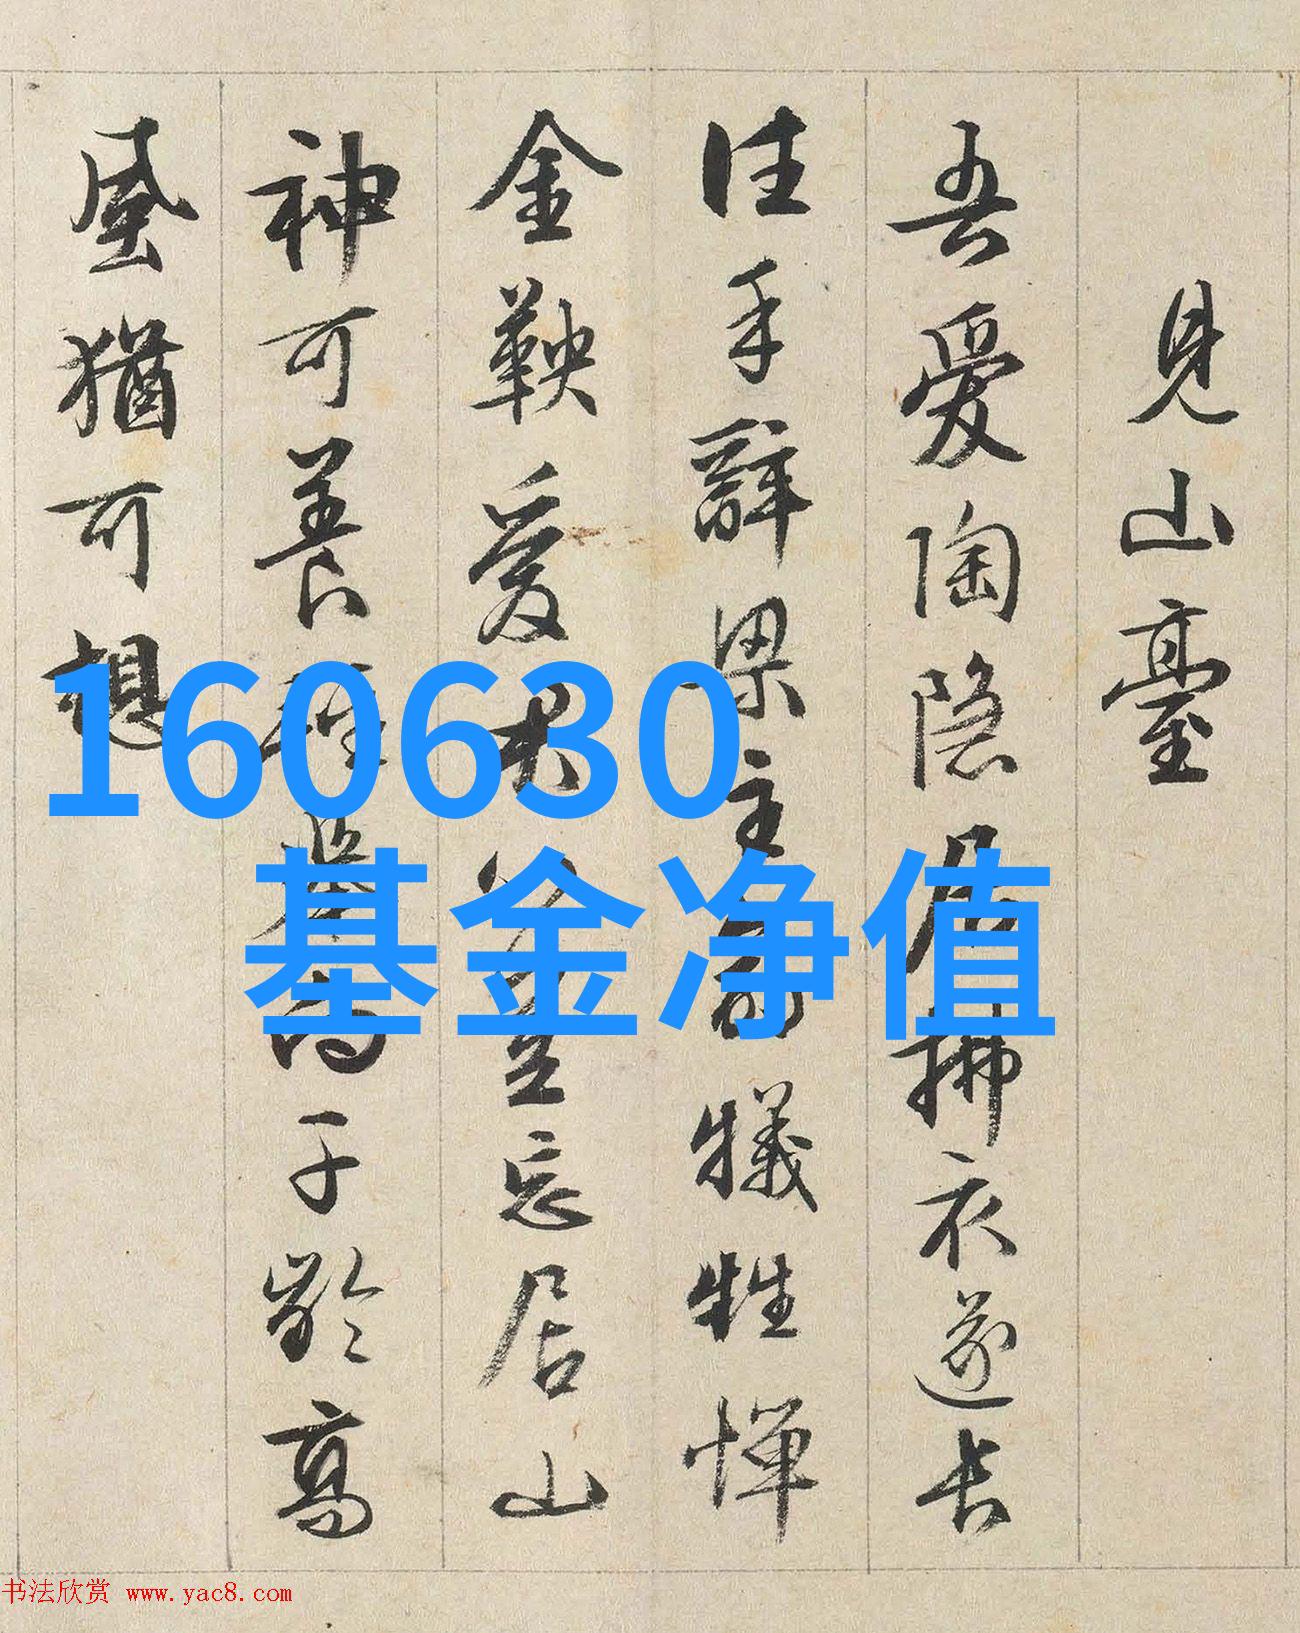 見山臺
吾愛陶隱居拂衣遂長
往手辭梁主犧牲憚
金鞅愛豈忘居山
神可養于齡高
風猶可想
160630
基金净值
书法欣赏 www.yac8.com